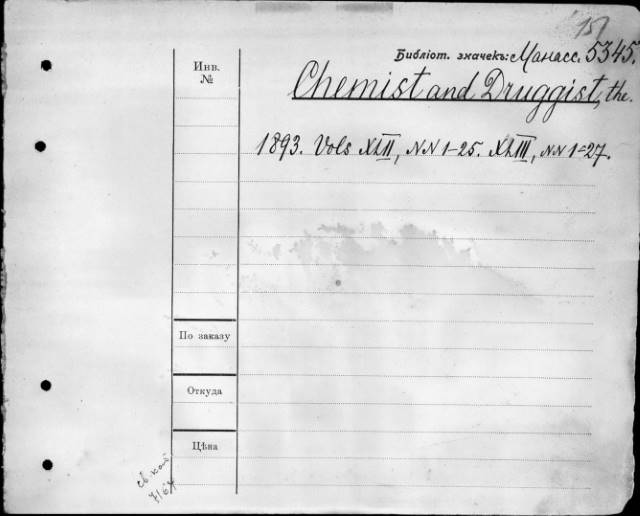 151
Библіот. значекъ: Манасс. 5345.
Инв.
№
Chemist and Druggist, the.
1893. Vols XLII, NN 1-25. XLIII, NN 1-27.
По заказу
Откуда
Цѣна
7/64